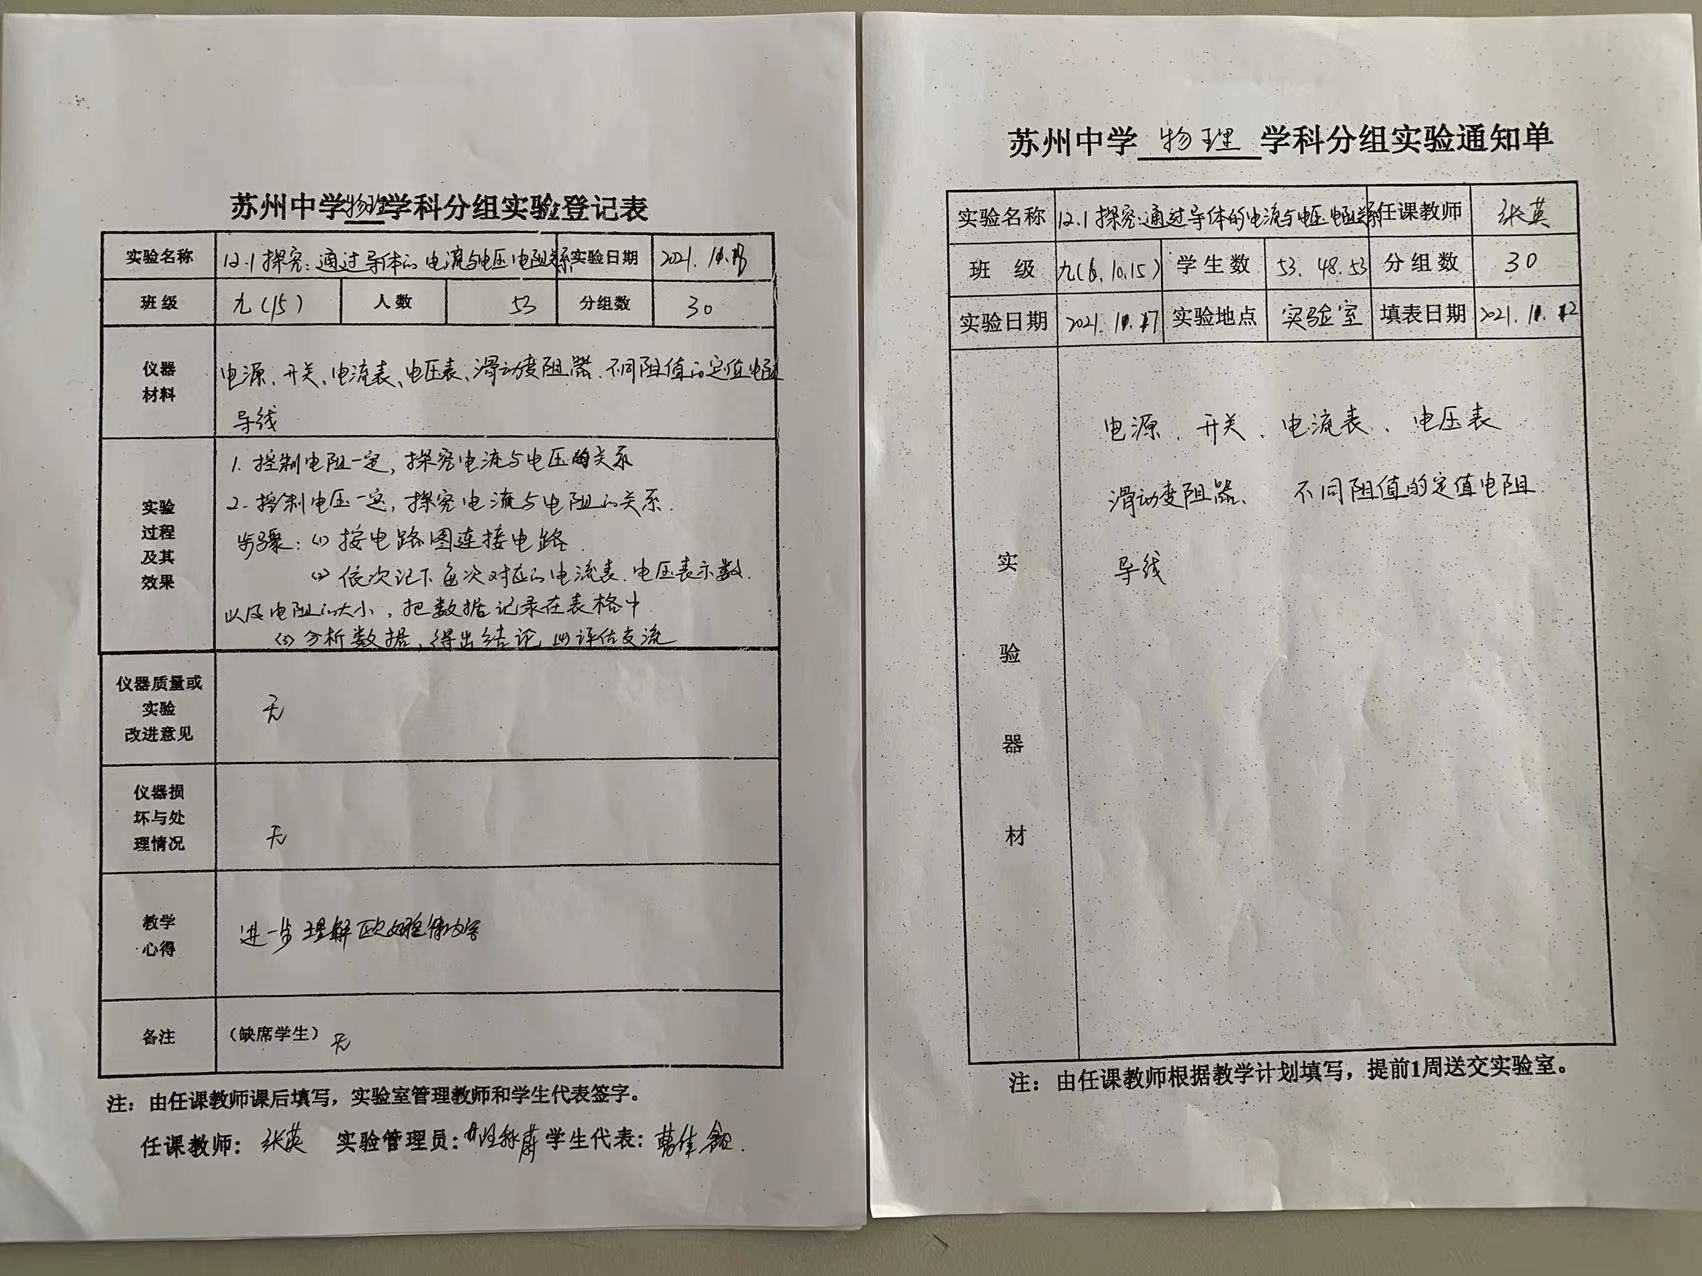 苏州中学物理学科分组实验登记表
实验名称 12.1探究:通过导体的电流与电压电阻关系 实验日期 2021.11.
班级 九(15) 人数 53 分组数 30
仪器
材料
电源、开关、电流表、电压表、滑动变阻器、不同阻值的定值电阻
导线
实验
过程
及其
效果
1. 控制电阻一定,探究电流与电压的关系
2. 控制电压一定,探究电流与电阻的关系.
步骤:(1) 按电路图连接电路.
(2) 依次记下每次对应的电流表.电压表示数.
以及电阻的大小,把数据记录在表格中
(3) 分析数据,得出结论,(4)评估交流
仪器质量或
实验
改进意见
无
仪器损
坏与处
理情况
无
教学
心得
进一步理解欧姆定律内容
备注 (缺席学生) 无
注:由任课教师课后填写,实验室管理教师和学生代表签字。
任课教师:张英 实验管理员: 学生代表:
苏州中学 物理 学科分组实验通知单
实验名称 12.1探究:通过导体的电流与电压电阻关系 任课教师 张英
班 级 九(6.10.15) 学生数 53.48.53 分组数 30
实验日期 2021.11.17 实验地点 实验室 填表日期 2021.11.12
实
验
器
材
电源、开关、电流表、电压表
滑动变阻器、 不同阻值的定值电阻.
导线
注:由任课教师根据教学计划填写,提前1周送交实验室。